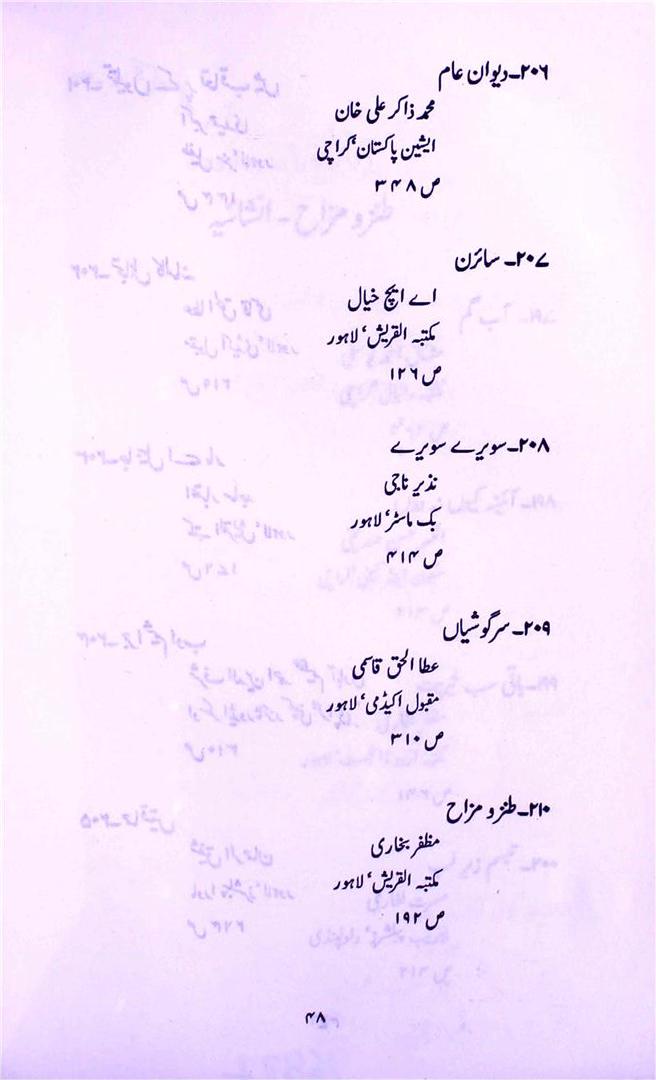 ۲۰۶۔ دیوان عام
محمد ذاکر علی خان
ایشین پاکستان، کراچی
ص ۳۴۸
۲۰۷۔ سائرن
اے ایچ خیال
مکتبہ القریش، لاہور
ص ۱۲۶
۲۰۸۔ سویرے سویرے
نذیر ناجی
بک ماسٹر، لاہور
ص ۴۱۴
۲۰۹۔ سرگوشیاں
عطا الحق قاسمی
مقبول اکیڈمی، لاہور
ص ۳۱۰
۲۱۰۔ طنز و مزاح
مظفر بخاری
مکتبہ القریش، لاہور
ص ۱۹۲
۴۸